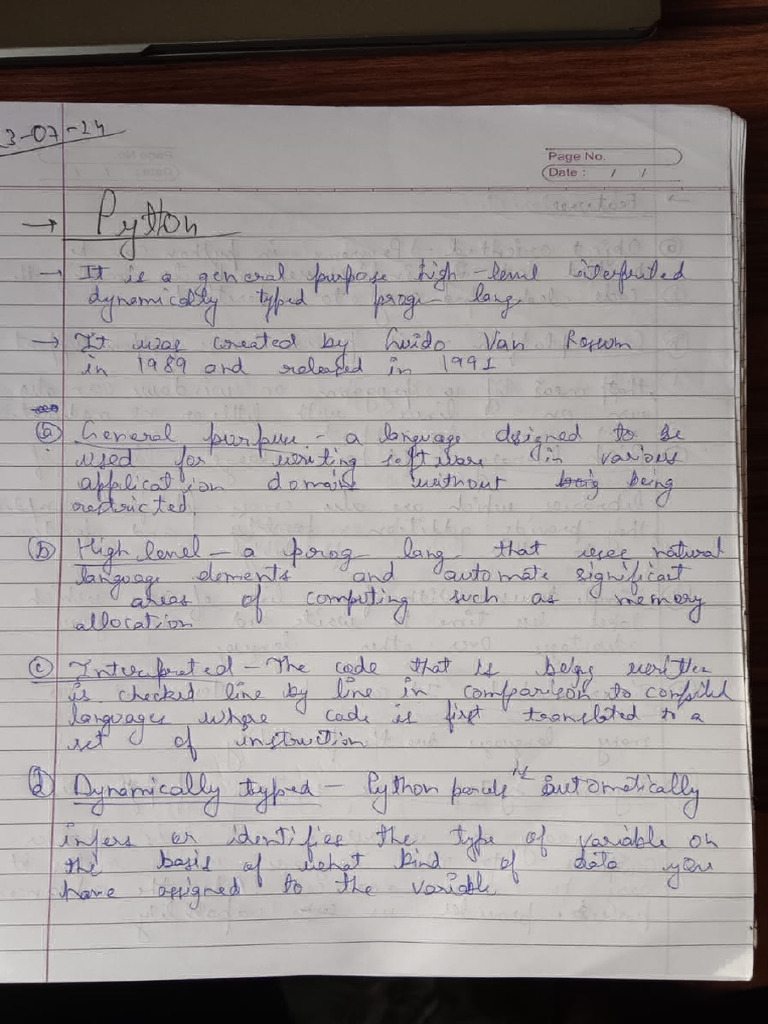 3-07-24
Page No.
Date : / /
→ Python
→ It is a general purpose high-level interpreted
dynamically typed prog- lang
→ It was created by Guido Van Rossum
in 1989 and released in 1991
(a) General purpose - a language designed to be
used for writing software in various
application domains without being
restricted.
(b) High level - a prog- lang- that uses natural
language elements and automate significant
areas of computing such as memory
allocation
(c) Interpreted - The code that is being written
is checked line by line in comparison to compiled
languages where code is first translated to a
set of instruction
(d) Dynamically typed - Python automatically
infers or identifies the type of variable on
the basis of what kind of data you
have assigned to the variable